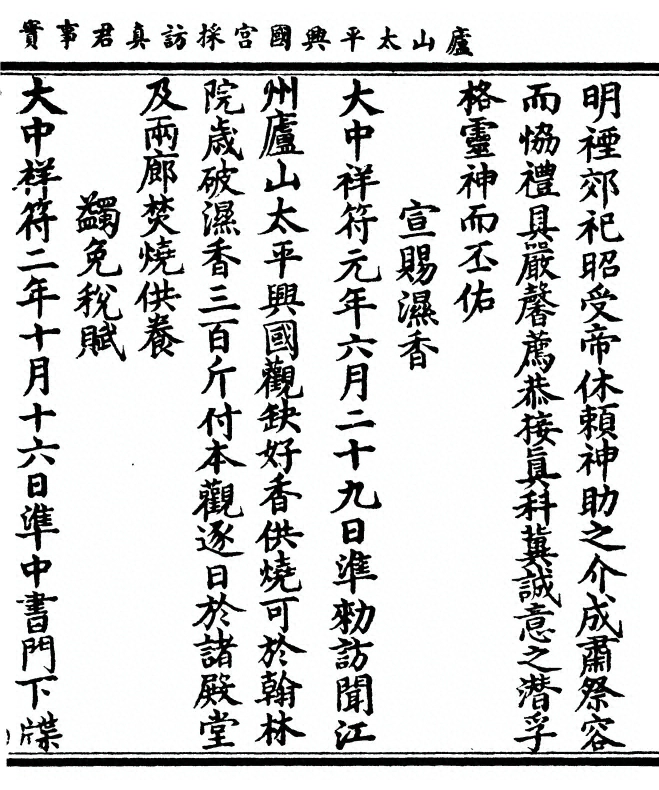 廬山太平興國宮採訪真君事實
明禋郊祀昭受帝休賴神助之介成肅祭容
而恊禮具嚴馨薦恭接真科冀誠意之潜孚
格靈神而丕佑
宣賜濕香
大中祥符元年六月二十九日準勑訪聞江
州廬山太平興國觀缺好香供燒可於翰林
院歲破濕香三百斤付本觀逐日於諸殿堂
及兩廊焚燒供養
蠲免稅賦
大中祥符二年十月十六日準中書門下牒